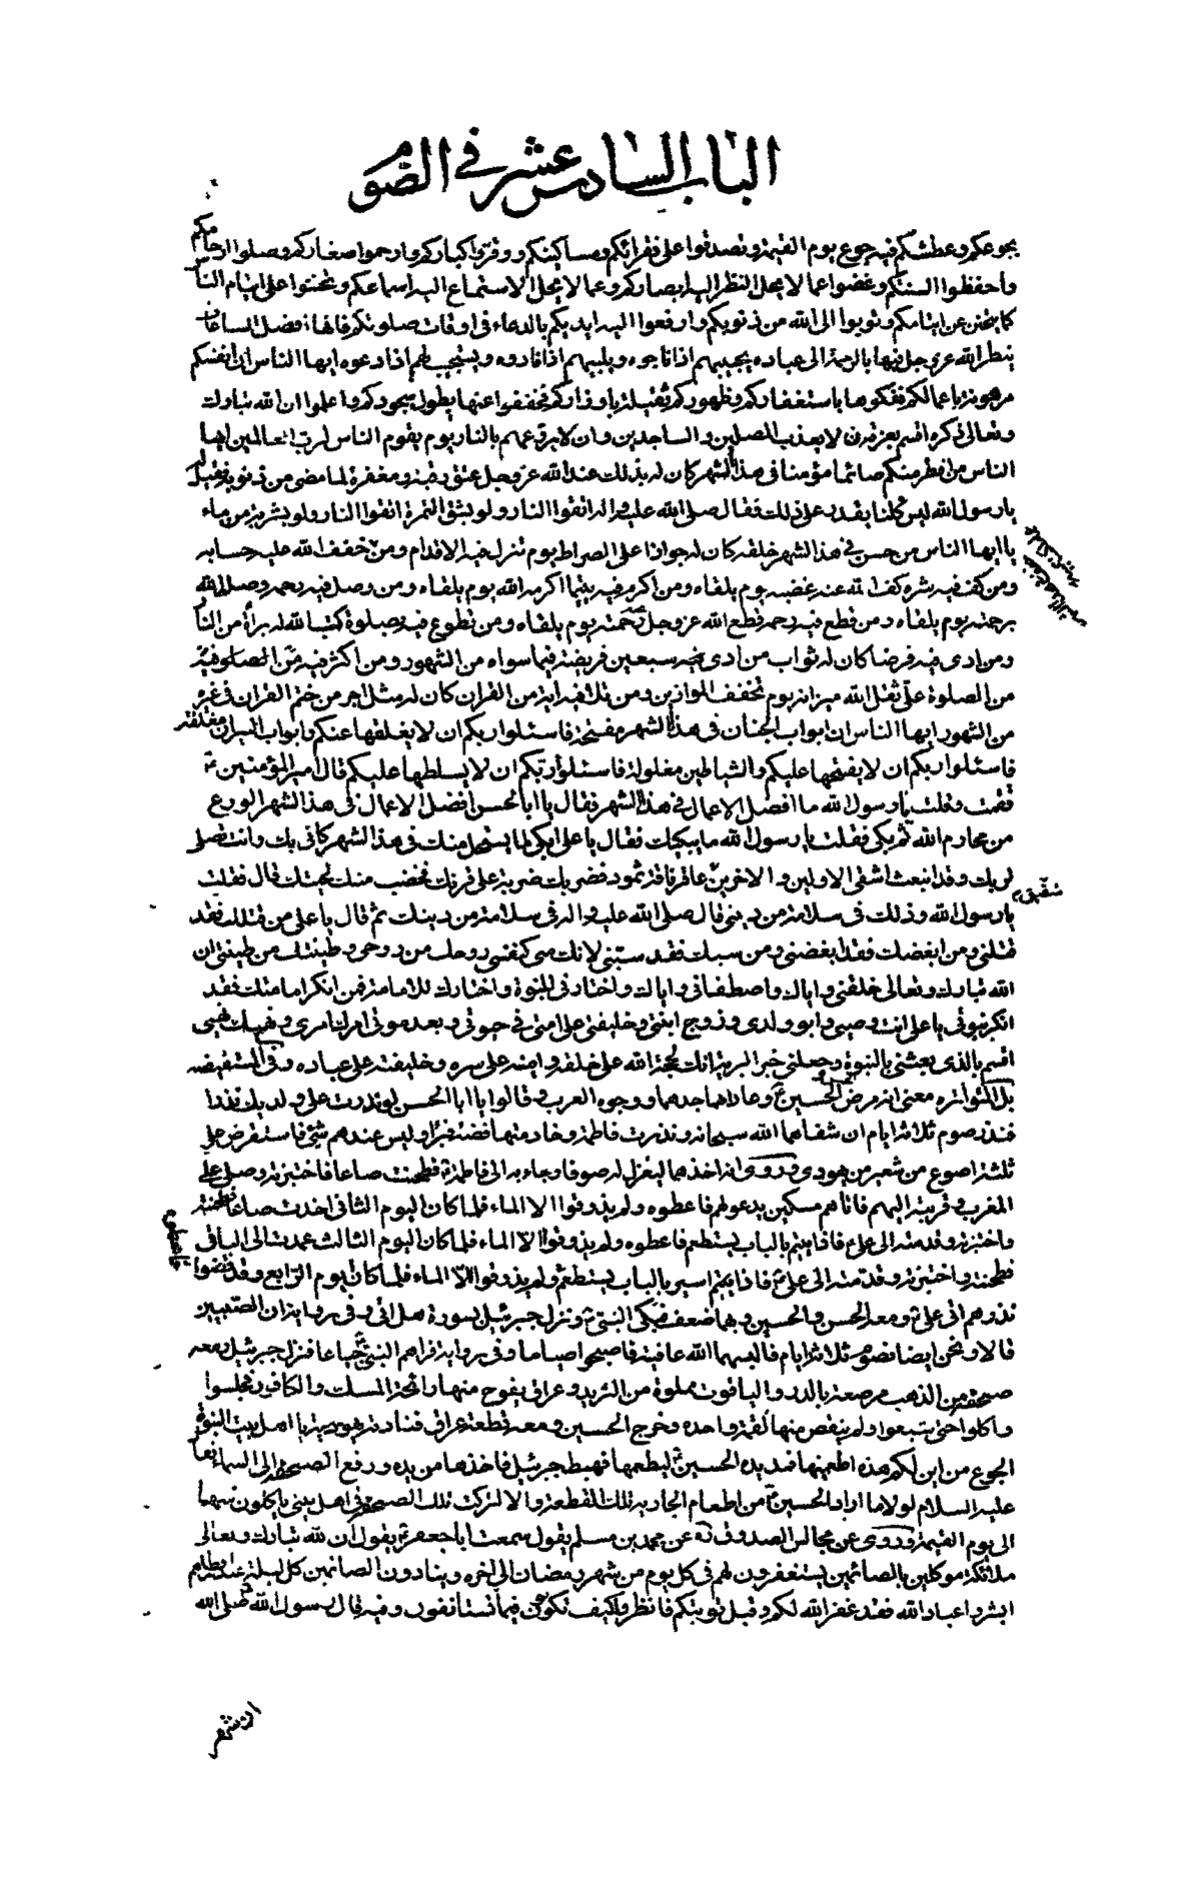 الباب السادس عشر في الصوم
بجوعكم وعطشكم فيه جوع يوم القيمة وتصدقوا على فقرائكم ومساكينكم ووقروا كباركم وارحموا صغاركم وصلوا ارحامكم
واحفظوا السنتكم وغضوا عما لا يحل النظر اليه ابصاركم وعما لا يحل الاستماع اليه اسماعكم وتحننوا على ايتام الناس
كما يتحنن عن ايتامكم وتوبوا الى الله من ذنوبكم وارفعوا اليه ايديكم بالدعاء في اوقات صلوتكم فانها افضل الساعات
ينظر الله عز وجل فيها بالرحمة الى عباده يجيبهم اذا ناجوه ويلبيهم اذا نادوه ويستجيب لهم اذا دعوه ايها الناس ان انفسكم
مرهونة باعمالكم ففكوها باستغفاركم وظهوركم ثقيلة باوزاركم فخففوا عنها بطول سجودكم واعلموا ان الله تبارك
وتعالى ذكره اقسم بعزته ان لا يعذب المصلين والساجدين وان لا يروعهم بالنار يوم يقوم الناس لرب العالمين ايها
الناس من افطر منكم صائما مؤمنا في هذا الشهر كان له بذلك عند الله عز وجل عتق رقبة ومغفرة لما مضى من ذنوبه فقيل له
يا رسول الله ليس كلنا يقدر على ذلك فقال صلى الله عليه واله اتقوا النار ولو بشق التمرة اتقوا النار ولو بشربة من ماء
يا ايها الناس من حسن في هذا الشهر خلقه كان له جوازا على الصراط يوم تزل فيه الاقدام ومن خفف الله عليه حسابه
ومن كف فيه شره كف الله عنه غضبه يوم يلقاه ومن اكرم فيه يتيما اكرمه الله يوم يلقاه ومن وصل فيه رحمه وصله الله
برحمته يوم يلقاه ومن قطع فيه رحمه قطع الله عز وجل رحمته يوم يلقاه ومن تطوع فيه بصلوة كتب الله له براة من النار
ومن ادى فيه فرضا كان له ثواب من ادى سبعين فريضة فيما سواه من الشهور ومن اكثر فيه من الصلوة فيه
من الصلوة علي ثقل الله ميزانه يوم تخفف الموازين ومن تلا فيه اية من القران كان له مثل اجر من ختم القران في غيره
من الشهور ايها الناس ان ابواب الجنان في هذا الشهر مفتحة فاسئلوا ربكم ان لا يغلقها عنكم وابواب النيران مغلقة
فاسئلوا ربكم ان لا يفتحها عليكم والشياطين مغلولة فاسئلوا ربكم ان لا يسلطها عليكم قال امير المؤمنين ع
فقمت وقلت يا رسول الله ما افضل الاعمال في هذا الشهر فقال يا ابا الحسن افضل الاعمال في هذا الشهر الورع
من محارم الله ثم بكى فقلت يا رسول الله ما يبكيك فقال يا علي ابكي لما يستحل منك في هذا الشهر كاني بك وانت تصلي
لربك وقد انبعث اشقى الاولين والاخرين عاقر ناقة ثمود فضربك ضربة على قرنك فخضب منك لحيتك قال فقلت
يا رسول الله وذلك في سلامة من ديني قال صلى الله عليه واله في سلامة من دينك ثم قال يا علي من قتلك فقد
قتلني ومن ابغضك فقد ابغضني ومن سبك فقد سبني لانك مني كنفسي روحك من روحي وطينتك من طينتي ان
الله تبارك وتعالى خلقني واياك واصطفاني واياك واختارني للنبوة واختارك للامامة فمن انكر امامتك فقد
انكر نبوتي يا علي انت وصيي وابو ولدي وزوج ابنتي وخليفتي على امتي في حيوتي وبعد موتي امرك امري ونهيك نهيي
اقسم بالذي بعثني بالنبوة وجعلني خير البرية انك لحجة الله على خلقه وامينه على سره وخليفته على عباده وفي المستفيضه
بل المتواتره معنى انه مرض الحسين ع وعادهما جدهما ووجوه العرب وقالوا يا ابا الحسن لو نذرت على ولديك نذرا
فنذر صوم ثلاثة ايام ان شفاهما الله سبحانه ونذرت فاطمة وخادمتها فضة فبرا وليس عندهم شيئ فاستقرض علي
ثلثة اصوع من شعير من يهودي وروى انه اخذها ليغزل له صوفا وجاء به الى فاطمة فطحنت صاعا فاختبزته وصلى علي
المغرب وقربته اليهم فاتاهم مسكين يدعو لهم فاعطوه ولم يذوقوا الا الماء فلما كان اليوم الثاني اخذت صاعا فطحنته
واختبزته وقدمته الى علي ع فاذا يتيم بالباب يستطعم فاعطوه ولم يذوقوا الا الماء فلما كان اليوم الثالث عمدت الى الباقي
فطحنته واختبزته وقدمته الى علي ع فاذا اسير بالباب يستطعم ولم يذوقوا الا الماء فلما كان يوم الرابع وقد قضوا
نذورهم اتى علي ع ومعه الحسن والحسين وبهما ضعف فبكى النبي ص ونزل جبرئيل بسورة هل اتى وفي رواية ان الصبيين
قالا ونحن ايضا نصوم ثلاثة ايام فالبسهما الله عافية فاصبحوا صياما وفي رواية فراهم النبي ص جياعا فنزل جبرئيل ومعه
صحفة من الذهب مرصعة بالدر والياقوت مملوة من الثريد وعراق يفوح منها رائحة المسك والكافور فجلسوا
واكلوا حتى شبعوا ولم ينقص منها لقمة واحدة وخرج الحسين ومعه قطعة عراق فنادته يهودية يا اهل بيت النبوة
الجوع من اين لكم هذه اطعمنيها فمد يده الحسين ع ليطعمها فهبط جبرئيل فاخذها من يده ورفع الصحفة الى السماء فقال
عليه السلام لولا ما اراد الحسين ع من اطعام الجارية تلك القطعة والا لتركت تلك الصحفة في اهل بيتي ياكلون منها
الى يوم القيمة وروى عن مجالس الصدوق ره عن محمد بن مسلم يقول سمعت ابا جعفر ع يقول ان لله تبارك وتعالى
ملائكة موكلين بالصائمين يستغفرون لهم في كل يوم من شهر رمضان الى اخره وينادون الصائمين كل ليلة عند افطارهم
ابشروا عباد الله فقد غفر الله لكم وقبل توبتكم فانظروا كيف تكونون فيما تستانفون وفيه قال رسول الله صلى الله
شقيق
فاعطوه
ان شهر